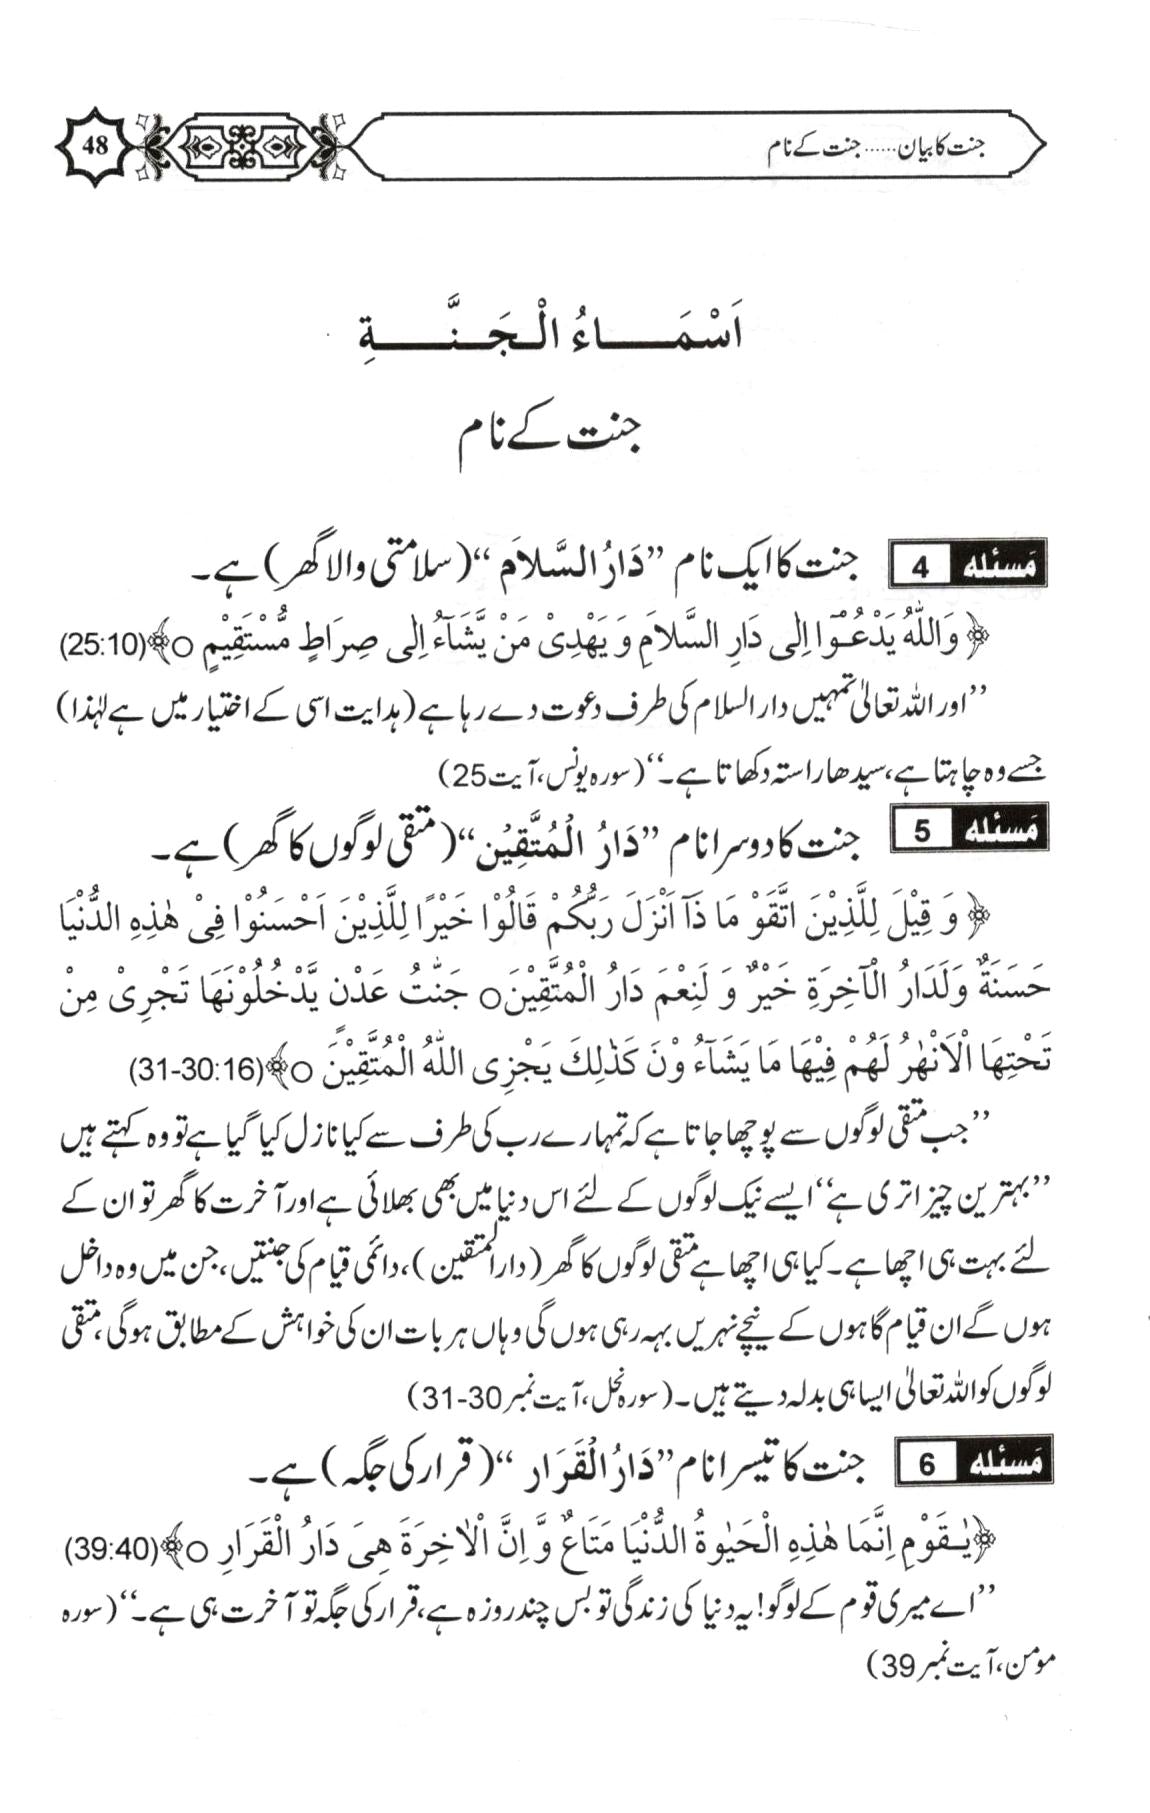 جنت کا بیان......جنت کے نام
48
اَسْمَاءُ الْجَنَّةِ
جنت کے نام
مَسئله 4 جنت کا ایک نام ”دَارُ السَّلاَم“ (سلامتی والا گھر) ہے۔
﴿وَاللّٰهُ يَدْعُوْٓا اِلٰى دَارِ السَّلاَمِ وَ يَهْدِىْ مَنْ يَّشَآءُ اِلٰى صِرَاطٍ مُّسْتَقِيْمٍ ○﴾(25:10)
”اور اللہ تعالیٰ تمہیں دارالسلام کی طرف دعوت دے رہا ہے (ہدایت اسی کے اختیار میں ہے لہٰذا)
جسے وہ چاہتا ہے، سیدھا راستہ دکھاتا ہے۔“ (سورہ یونس، آیت 25)
مَسئله 5 جنت کا دوسرا نام ”دَارُ الْمُتَّقِيْن“ (متقی لوگوں کا گھر) ہے۔
﴿وَ قِيْلَ لِلَّذِيْنَ اتَّقَوْ مَا ذَآ اَنْزَلَ رَبُّكُمْ قَالُوْا خَيْرًا لِلَّذِيْنَ اَحْسَنُوْا فِىْ هٰذِهِ الدُّنْيَا
حَسَنَةٌ وَلَدَارُ الْآخِرَةِ خَيْرٌ وَ لَنِعْمَ دَارُ الْمُتَّقِيْنَ○ جَنّٰتُ عَدْنٍ يَّدْخُلُوْنَهَا تَجْرِىْ مِنْ
تَحْتِهَا الْاَنْهٰرُ لَهُمْ فِيْهَا مَا يَشَآءُ وْنَ كَذٰلِكَ يَجْزِى اللّٰهُ الْمُتَّقِيْنَ ○﴾(31-30:16)
”جب متقی لوگوں سے پوچھا جاتا ہے کہ تمہارے رب کی طرف سے کیا نازل کیا گیا ہے تو وہ کہتے ہیں
”بہترین چیز اتری ہے“ ایسے نیک لوگوں کے لئے اس دنیا میں بھی بھلائی ہے اور آخرت کا گھر تو ان کے
لئے بہت ہی اچھا ہے۔ کیا ہی اچھا ہے متقی لوگوں کا گھر (دارالمتقین)، دائمی قیام کی جنتیں، جن میں وہ داخل
ہوں گے ان قیام گاہوں کے نیچے نہریں بہہ رہی ہوں گی وہاں ہر بات ان کی خواہش کے مطابق ہوگی، متقی
لوگوں کو اللہ تعالیٰ ایسا ہی بدلہ دیتے ہیں۔ (سورہ نحل، آیت نمبر 30-31)
مَسئله 6 جنت کا تیسرا نام ”دَارُ الْقَرَار“ (قرار کی جگہ) ہے۔
﴿يٰقَوْمِ اِنَّمَا هٰذِهِ الْحَيٰوةُ الدُّنْيَا مَتَاعٌ وَّ اِنَّ الْاٰخِرَةَ هِىَ دَارُ الْقَرَارِ ○﴾(39:40)
”اے میری قوم کے لوگو! یہ دنیا کی زندگی تو بس چند روزہ ہے، قرار کی جگہ تو آخرت ہی ہے۔“ (سورہ
مومن، آیت نمبر 39)